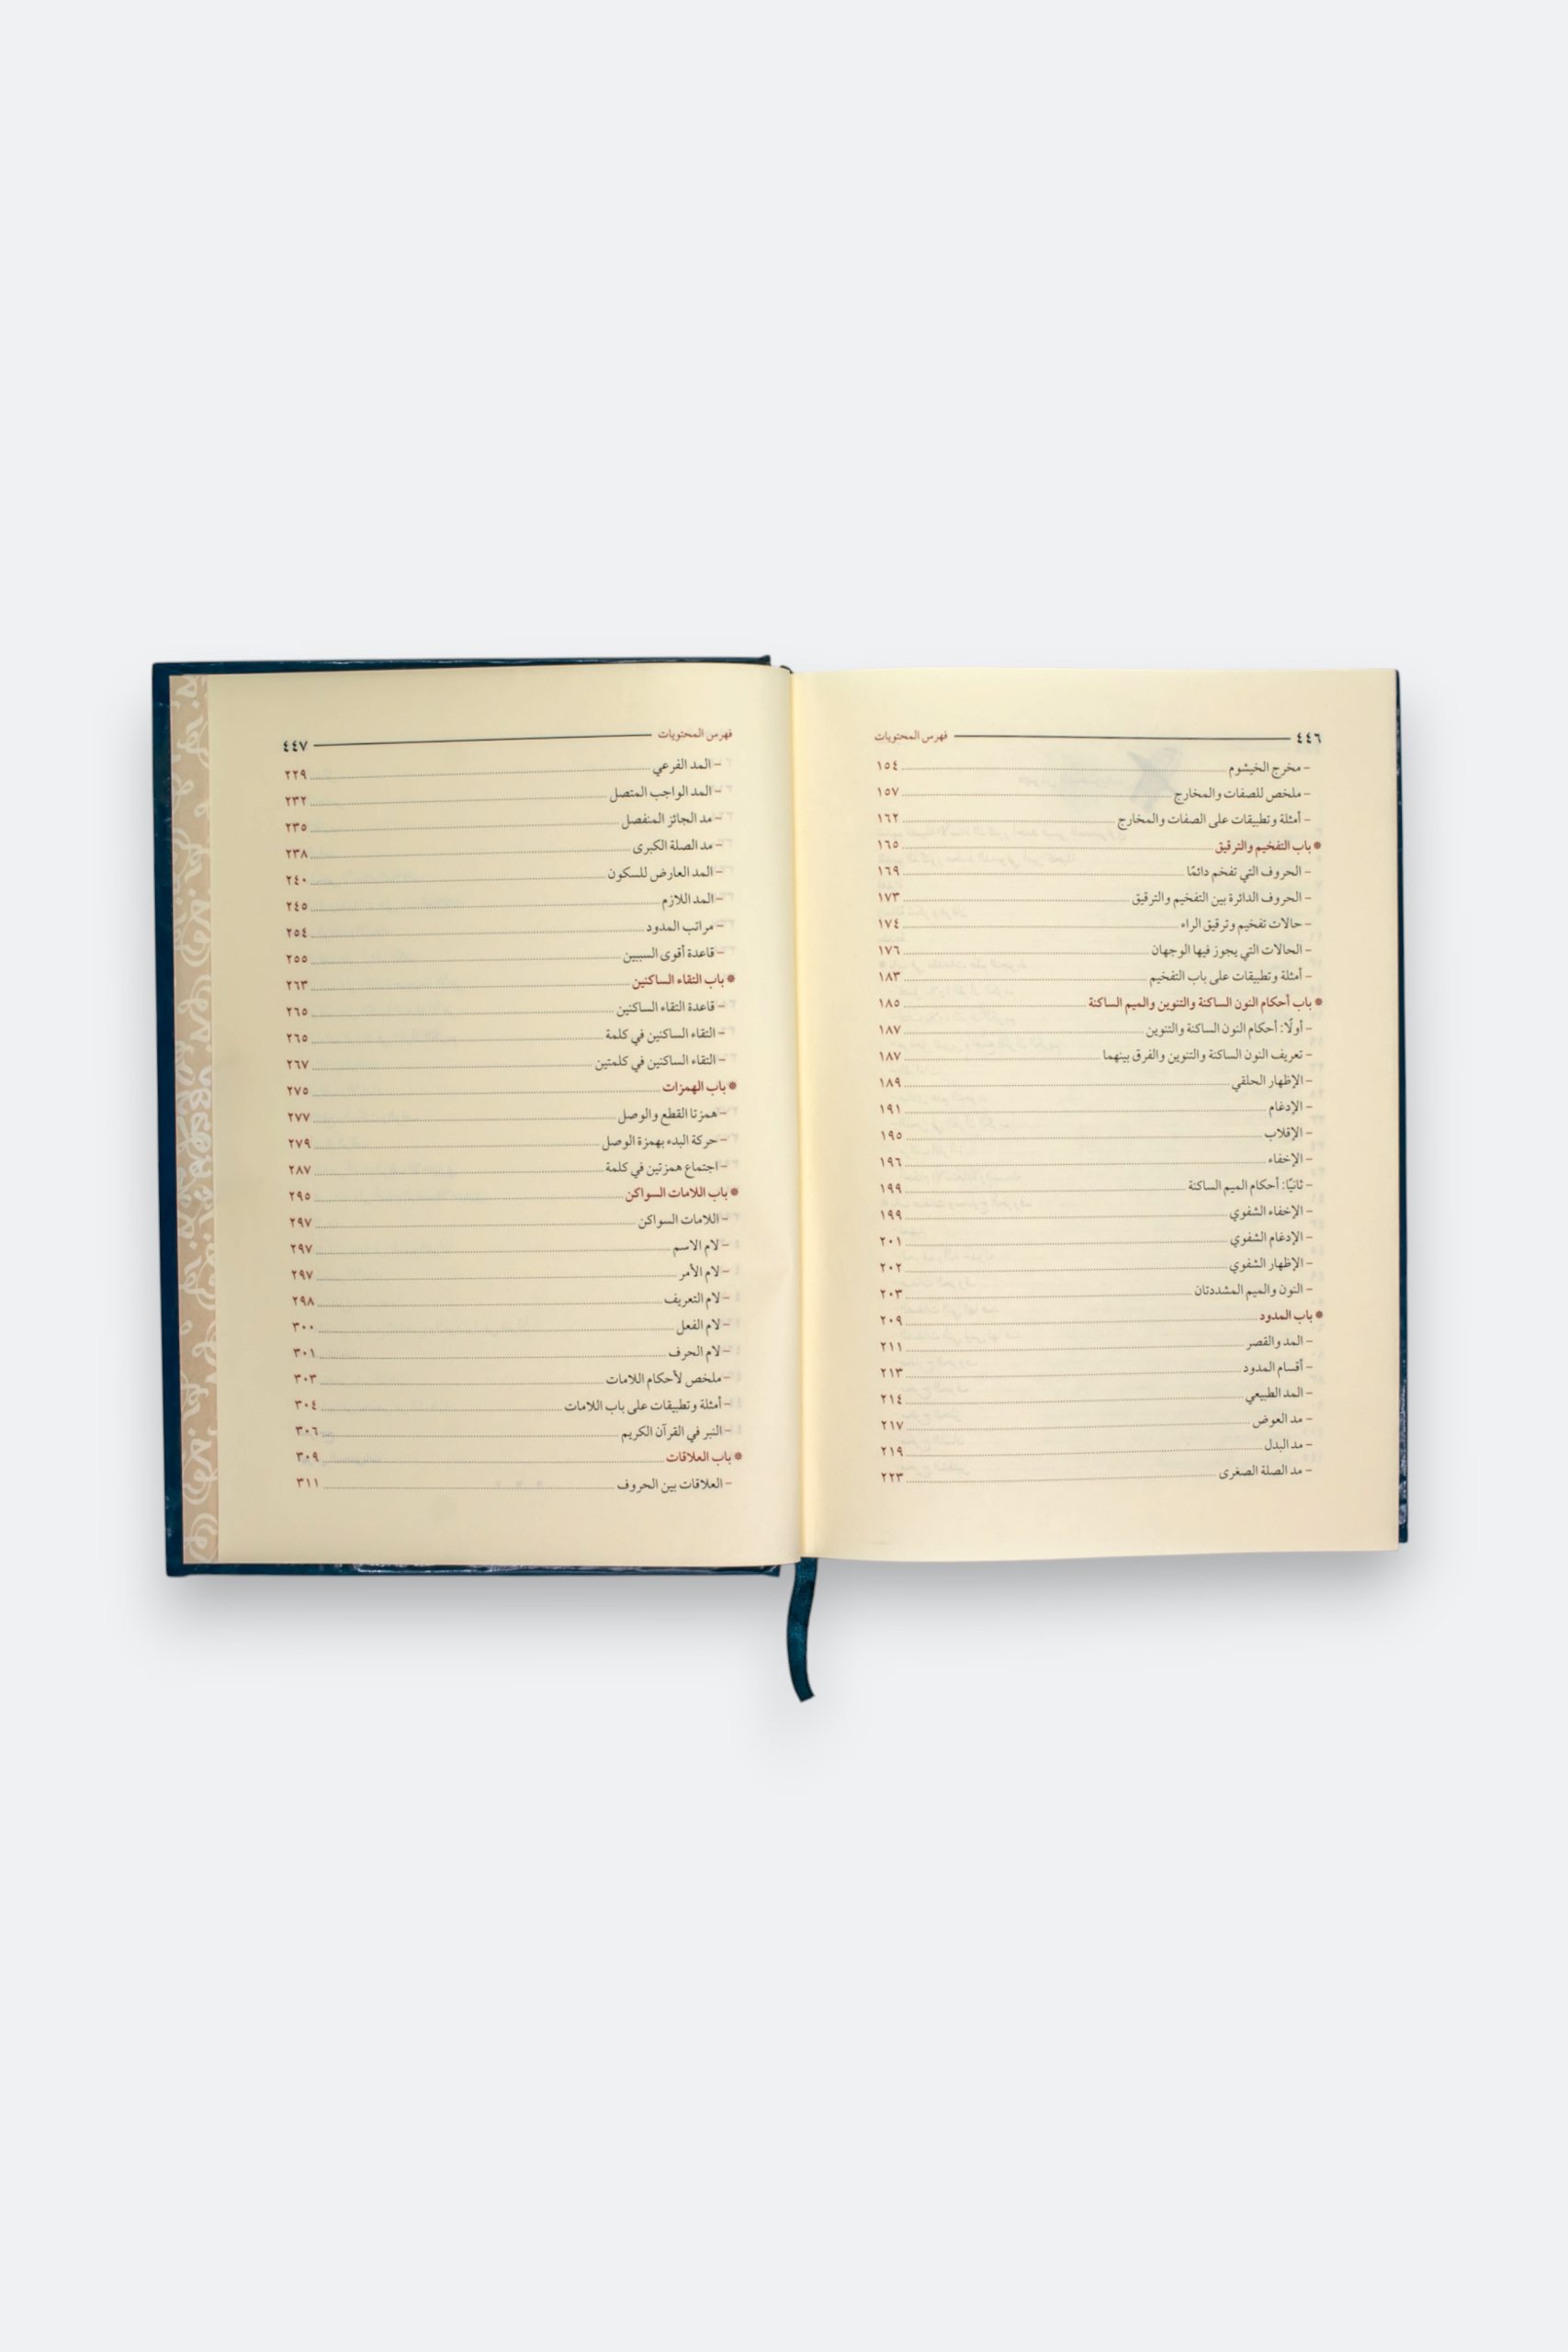 ٤٤٦ فهرس المحتويات
- مخرج الخيشوم ١٥٤
- ملخص للصفات والمخارج ١٥٧
- أمثلة وتطبيقات على الصفات والمخارج ١٦٢
* باب التفخيم والترقيق ١٦٥
- الحروف التي تفخم دائمًا ١٦٩
- الحروف الدائرة بين التفخيم والترقيق ١٧٣
- حالات تفخيم وترقيق الراء ١٧٤
- الحالات التي يجوز فيها الوجهان ١٧٦
- أمثلة وتطبيقات على باب التفخيم ١٨٣
* باب أحكام النون الساكنة والتنوين والميم الساكنة ١٨٥
- أولًا: أحكام النون الساكنة والتنوين ١٨٧
- تعريف النون الساكنة والتنوين والفرق بينهما ١٨٧
- الإظهار الحلقي ١٨٩
- الإدغام ١٩١
- الإقلاب ١٩٥
- الإخفاء ١٩٦
- ثانيًا: أحكام الميم الساكنة ١٩٩
- الإخفاء الشفوي ١٩٩
- الإدغام الشفوي ٢٠١
- الإظهار الشفوي ٢٠٢
- النون والميم المشددتان ٢٠٣
* باب المدود ٢٠٩
- المد والقصر ٢١١
- أقسام المدود ٢١٣
- المد الطبيعي ٢١٤
- مد العوض ٢١٧
- مد البدل ٢١٩
- مد الصلة الصغرى ٢٢٣
فهرس المحتويات ٤٤٧
- المد الفرعي ٢٢٩
- المد الواجب المتصل ٢٣٢
- مد الجائز المنفصل ٢٣٥
- مد الصلة الكبرى ٢٣٨
- المد العارض للسكون ٢٤٠
- المد اللازم ٢٤٥
- مراتب المدود ٢٥٤
- قاعدة أقوى السببين ٢٥٥
* باب التقاء الساكنين ٢٦٣
- قاعدة التقاء الساكنين ٢٦٥
- التقاء الساكنين في كلمة ٢٦٥
- التقاء الساكنين في كلمتين ٢٦٧
* باب الهمزات ٢٧٥
- همزتا القطع والوصل ٢٧٧
- حركة البدء بهمزة الوصل ٢٧٩
- اجتماع همزتين في كلمة ٢٨٧
* باب اللامات السواكن ٢٩٥
- اللامات السواكن ٢٩٧
- لام الاسم ٢٩٧
- لام الأمر ٢٩٧
- لام التعريف ٢٩٨
- لام الفعل ٣٠٠
- لام الحرف ٣٠١
- ملخص لأحكام اللامات ٣٠٣
- أمثلة وتطبيقات على باب اللامات ٣٠٤
- النبر في القرآن الكريم ٣٠٦
* باب العلاقات ٣٠٩
- العلاقات بين الحروف ٣١١